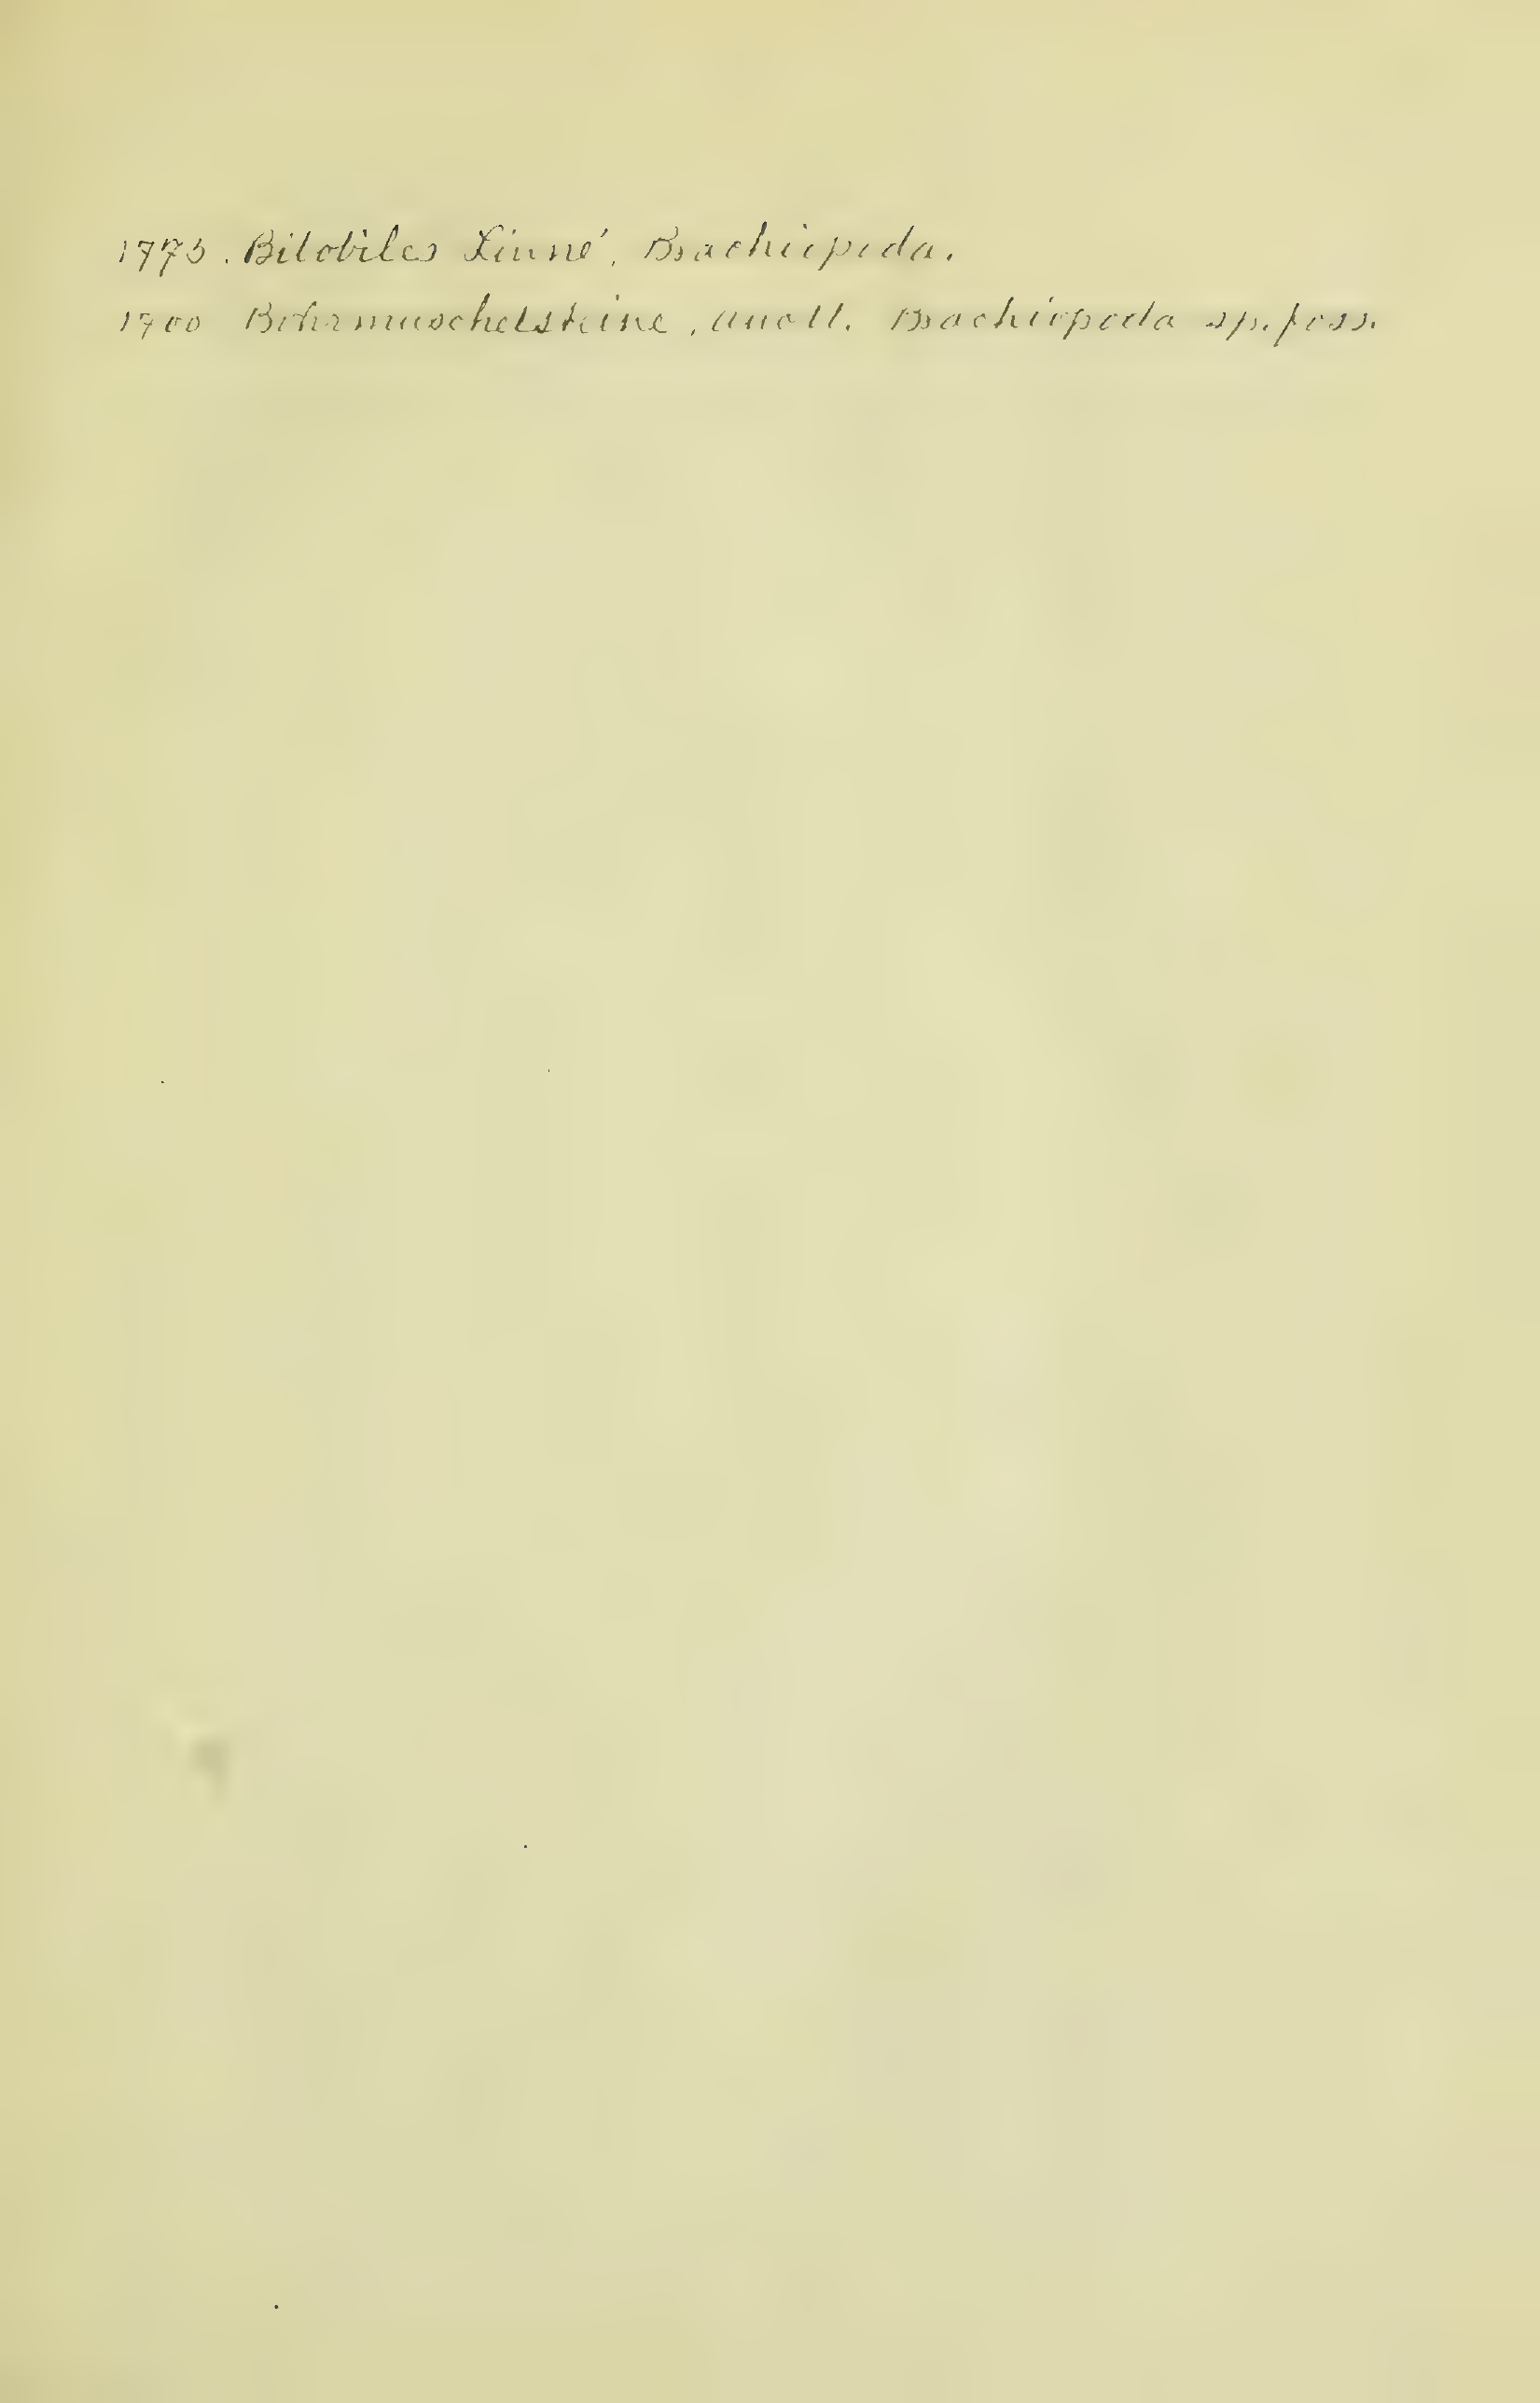 1775. Bilobites Linné, Brachiopoda.
1700 Bohrmuschelsteine, auctt. Brachiopoda sp. foss.